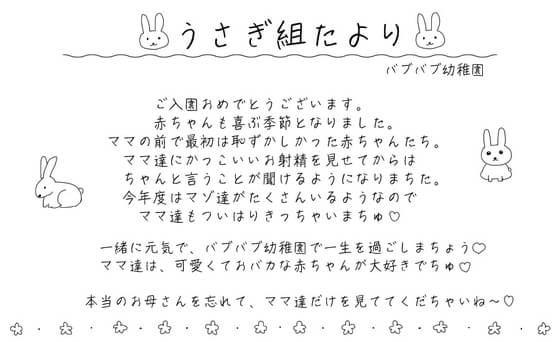 うさぎ組たより
バブバブ幼稚園
ご入園おめでとうございます。
赤ちゃんも喜ぶ季節となりました。
ママの前で最初は恥ずかしかった赤ちゃんたち。
ママ達にかっこいいお射精を見せてからは
ちゃんと言うことが聞けるようになりまちた。
今年度はマゾ達がたくさんいるようなので
ママ達もついはりきっちゃいまちゅ♡
一緒に元気で、バブバブ幼稚園で一生を過ごしまちょう♡
ママ達は、可愛くておバカな赤ちゃんが大好きでちゅ♡
本当のお母さんを忘れて、ママ達だけを見ててくだちゃいね～♡